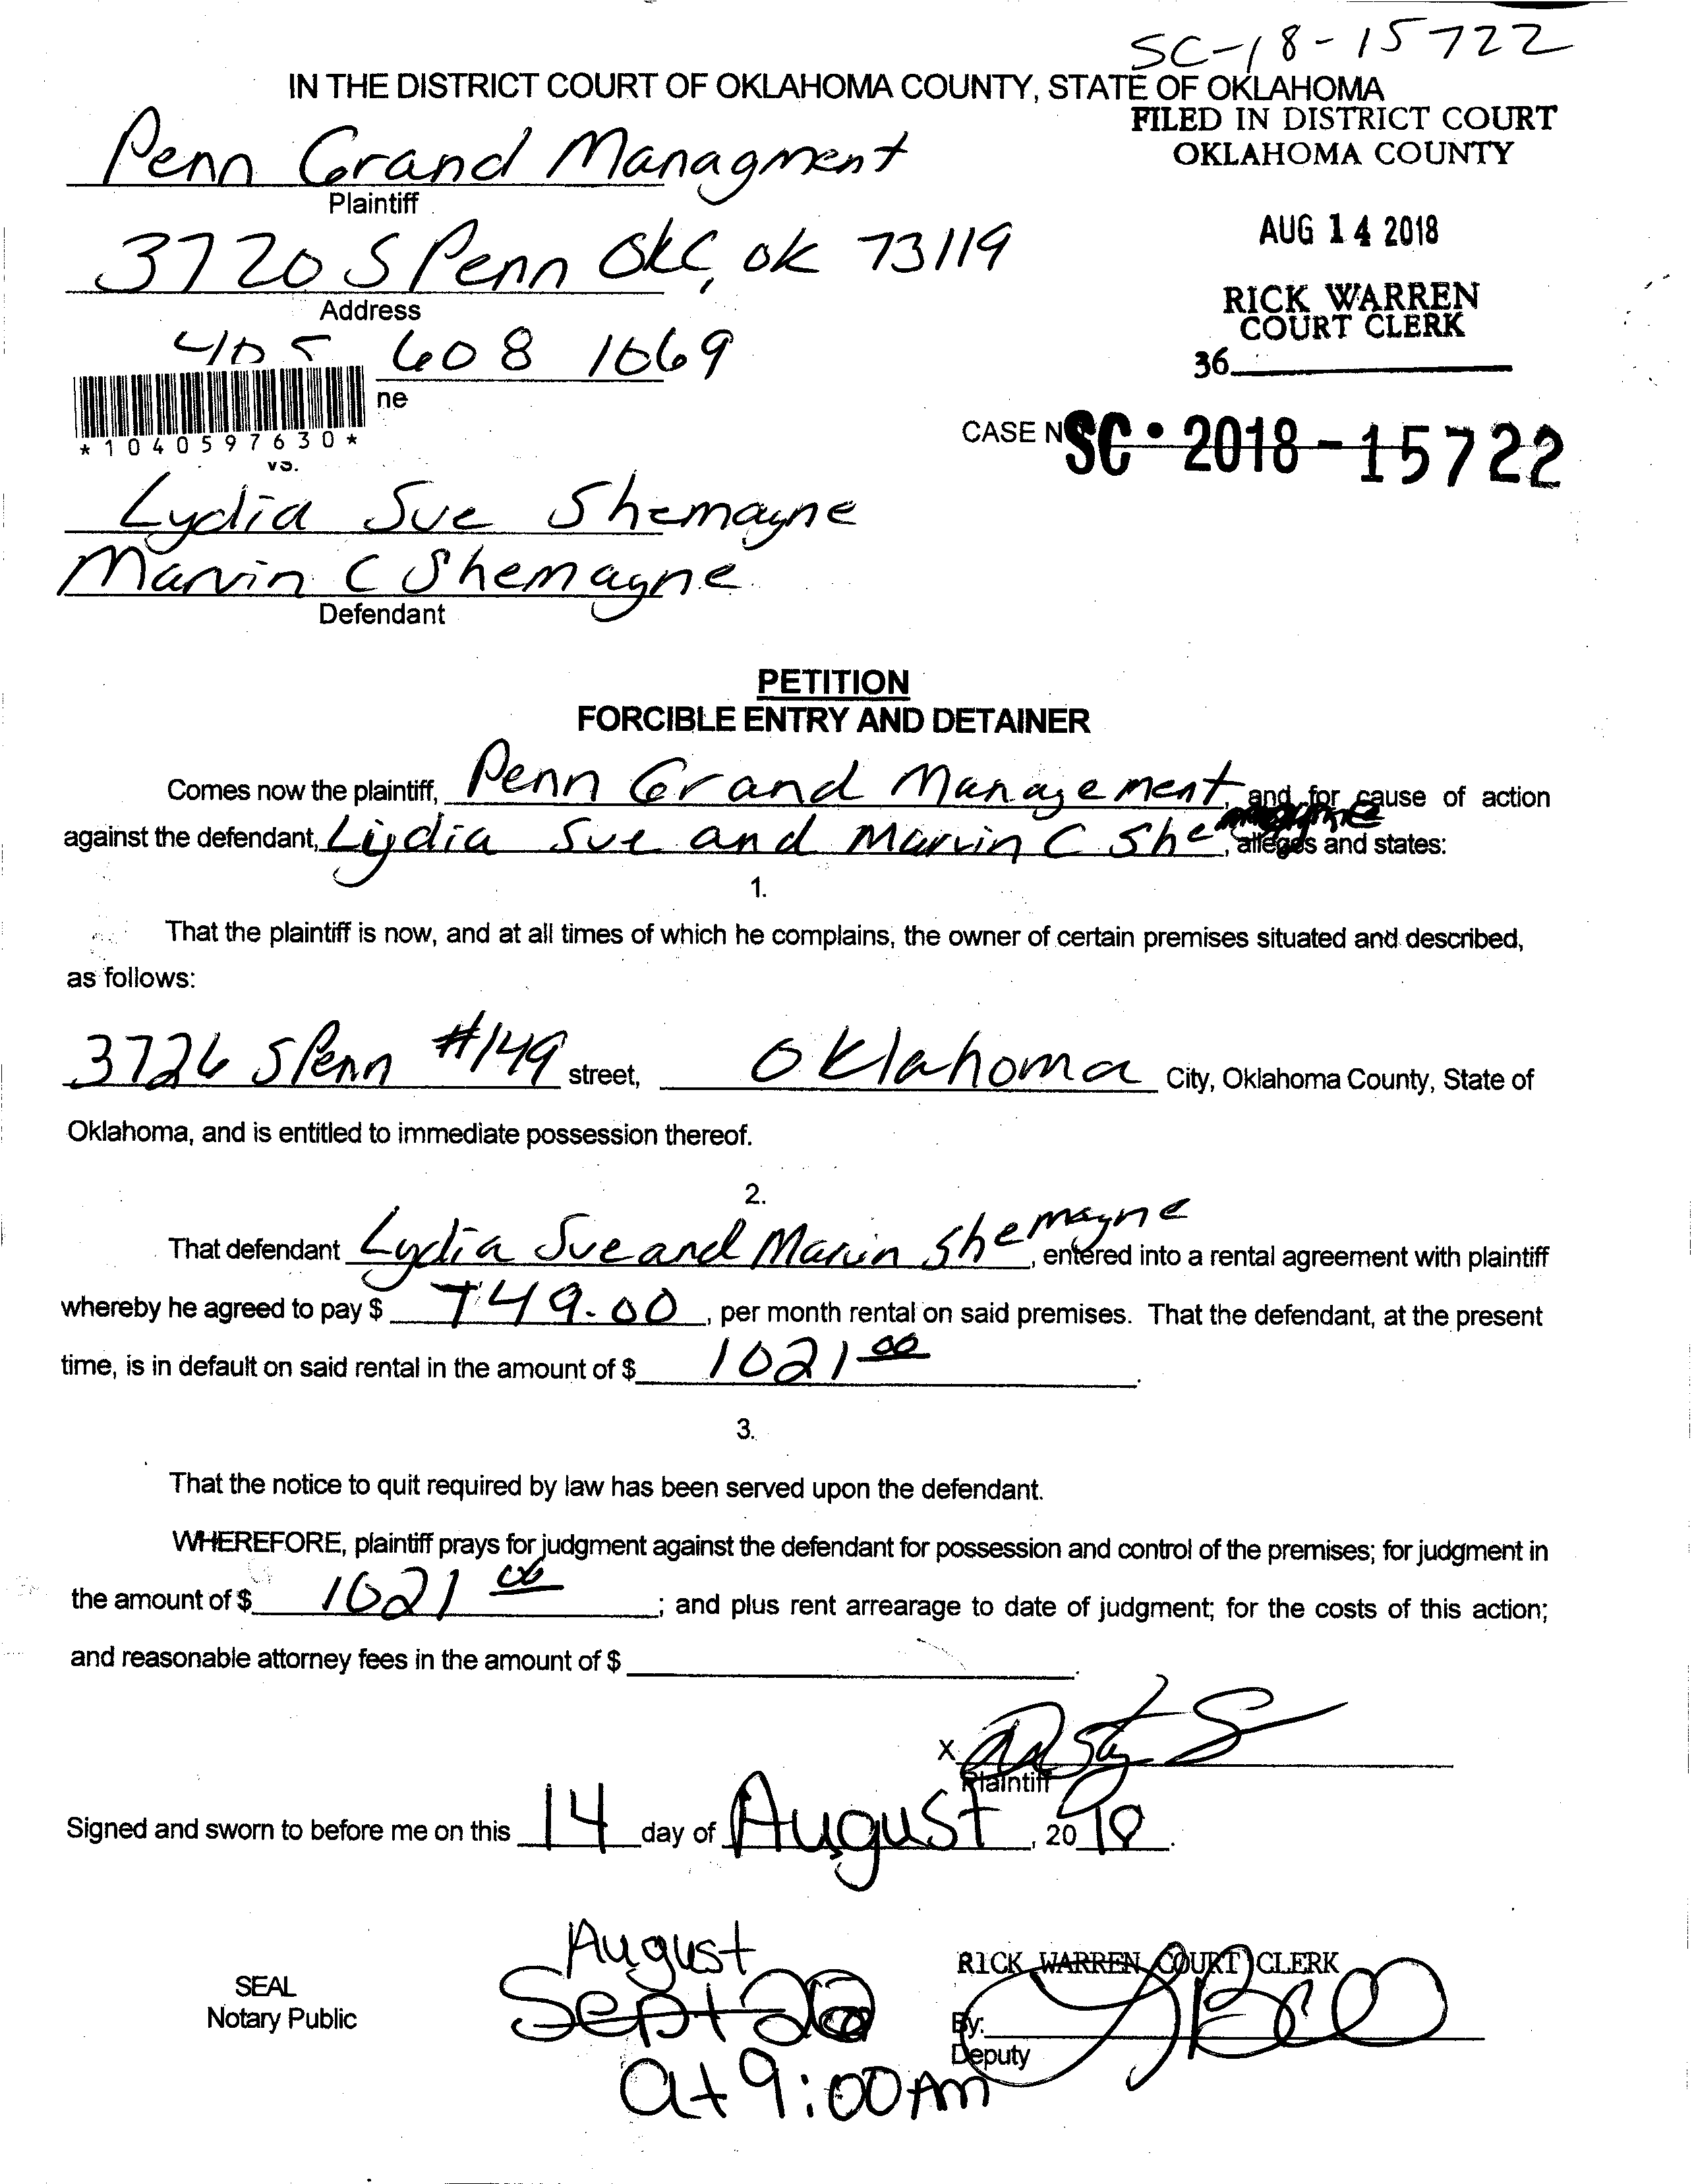 SC-18-15722
IN THE DISTRICT COURT OF OKLAHOMA COUNTY, STATE OF OKLAHOMA
FILED IN DISTRICT COURT
OKLAHOMA COUNTY
Penn Grand Managment
Plaintiff
AUG 14 2018
3720 S Penn OKC, OK 73119
Address
RICK WARREN
COURT CLERK
405 608 1669
36
ne
*1040597630*
CASE N SC • 2018 - 15722
vs.
Lydia Sue Shemayne
Marvin C Shemayne
Defendant
PETITION
FORCIBLE ENTRY AND DETAINER
Comes now the plaintiff, Penn Grand Management, and for cause of action
against the defendant, Lydia Sue and Marvin C She, alleges and states:
1.
That the plaintiff is now, and at all times of which he complains, the owner of certain premises situated and described,
as follows:
3726 S Penn #149 street, Oklahoma City, Oklahoma County, State of
Oklahoma, and is entitled to immediate possession thereof.
2.
That defendant Lydia Sue and Marvin Shemayne, entered into a rental agreement with plaintiff
whereby he agreed to pay $ 749.00, per month rental on said premises. That the defendant, at the present
time, is in default on said rental in the amount of $ 1021 00.
3.
That the notice to quit required by law has been served upon the defendant.
WHEREFORE, plaintiff prays for judgment against the defendant for possession and control of the premises; for judgment in
the amount of $ 1021 00; and plus rent arrearage to date of judgment; for the costs of this action;
and reasonable attorney fees in the amount of $ .
X
Plaintiff
Signed and sworn to before me on this 14 day of August, 2018.
August
SEAL
Notary Public
Sept 22
at 9:00 AM
RICK WARREN COURT CLERK
By:
Deputy